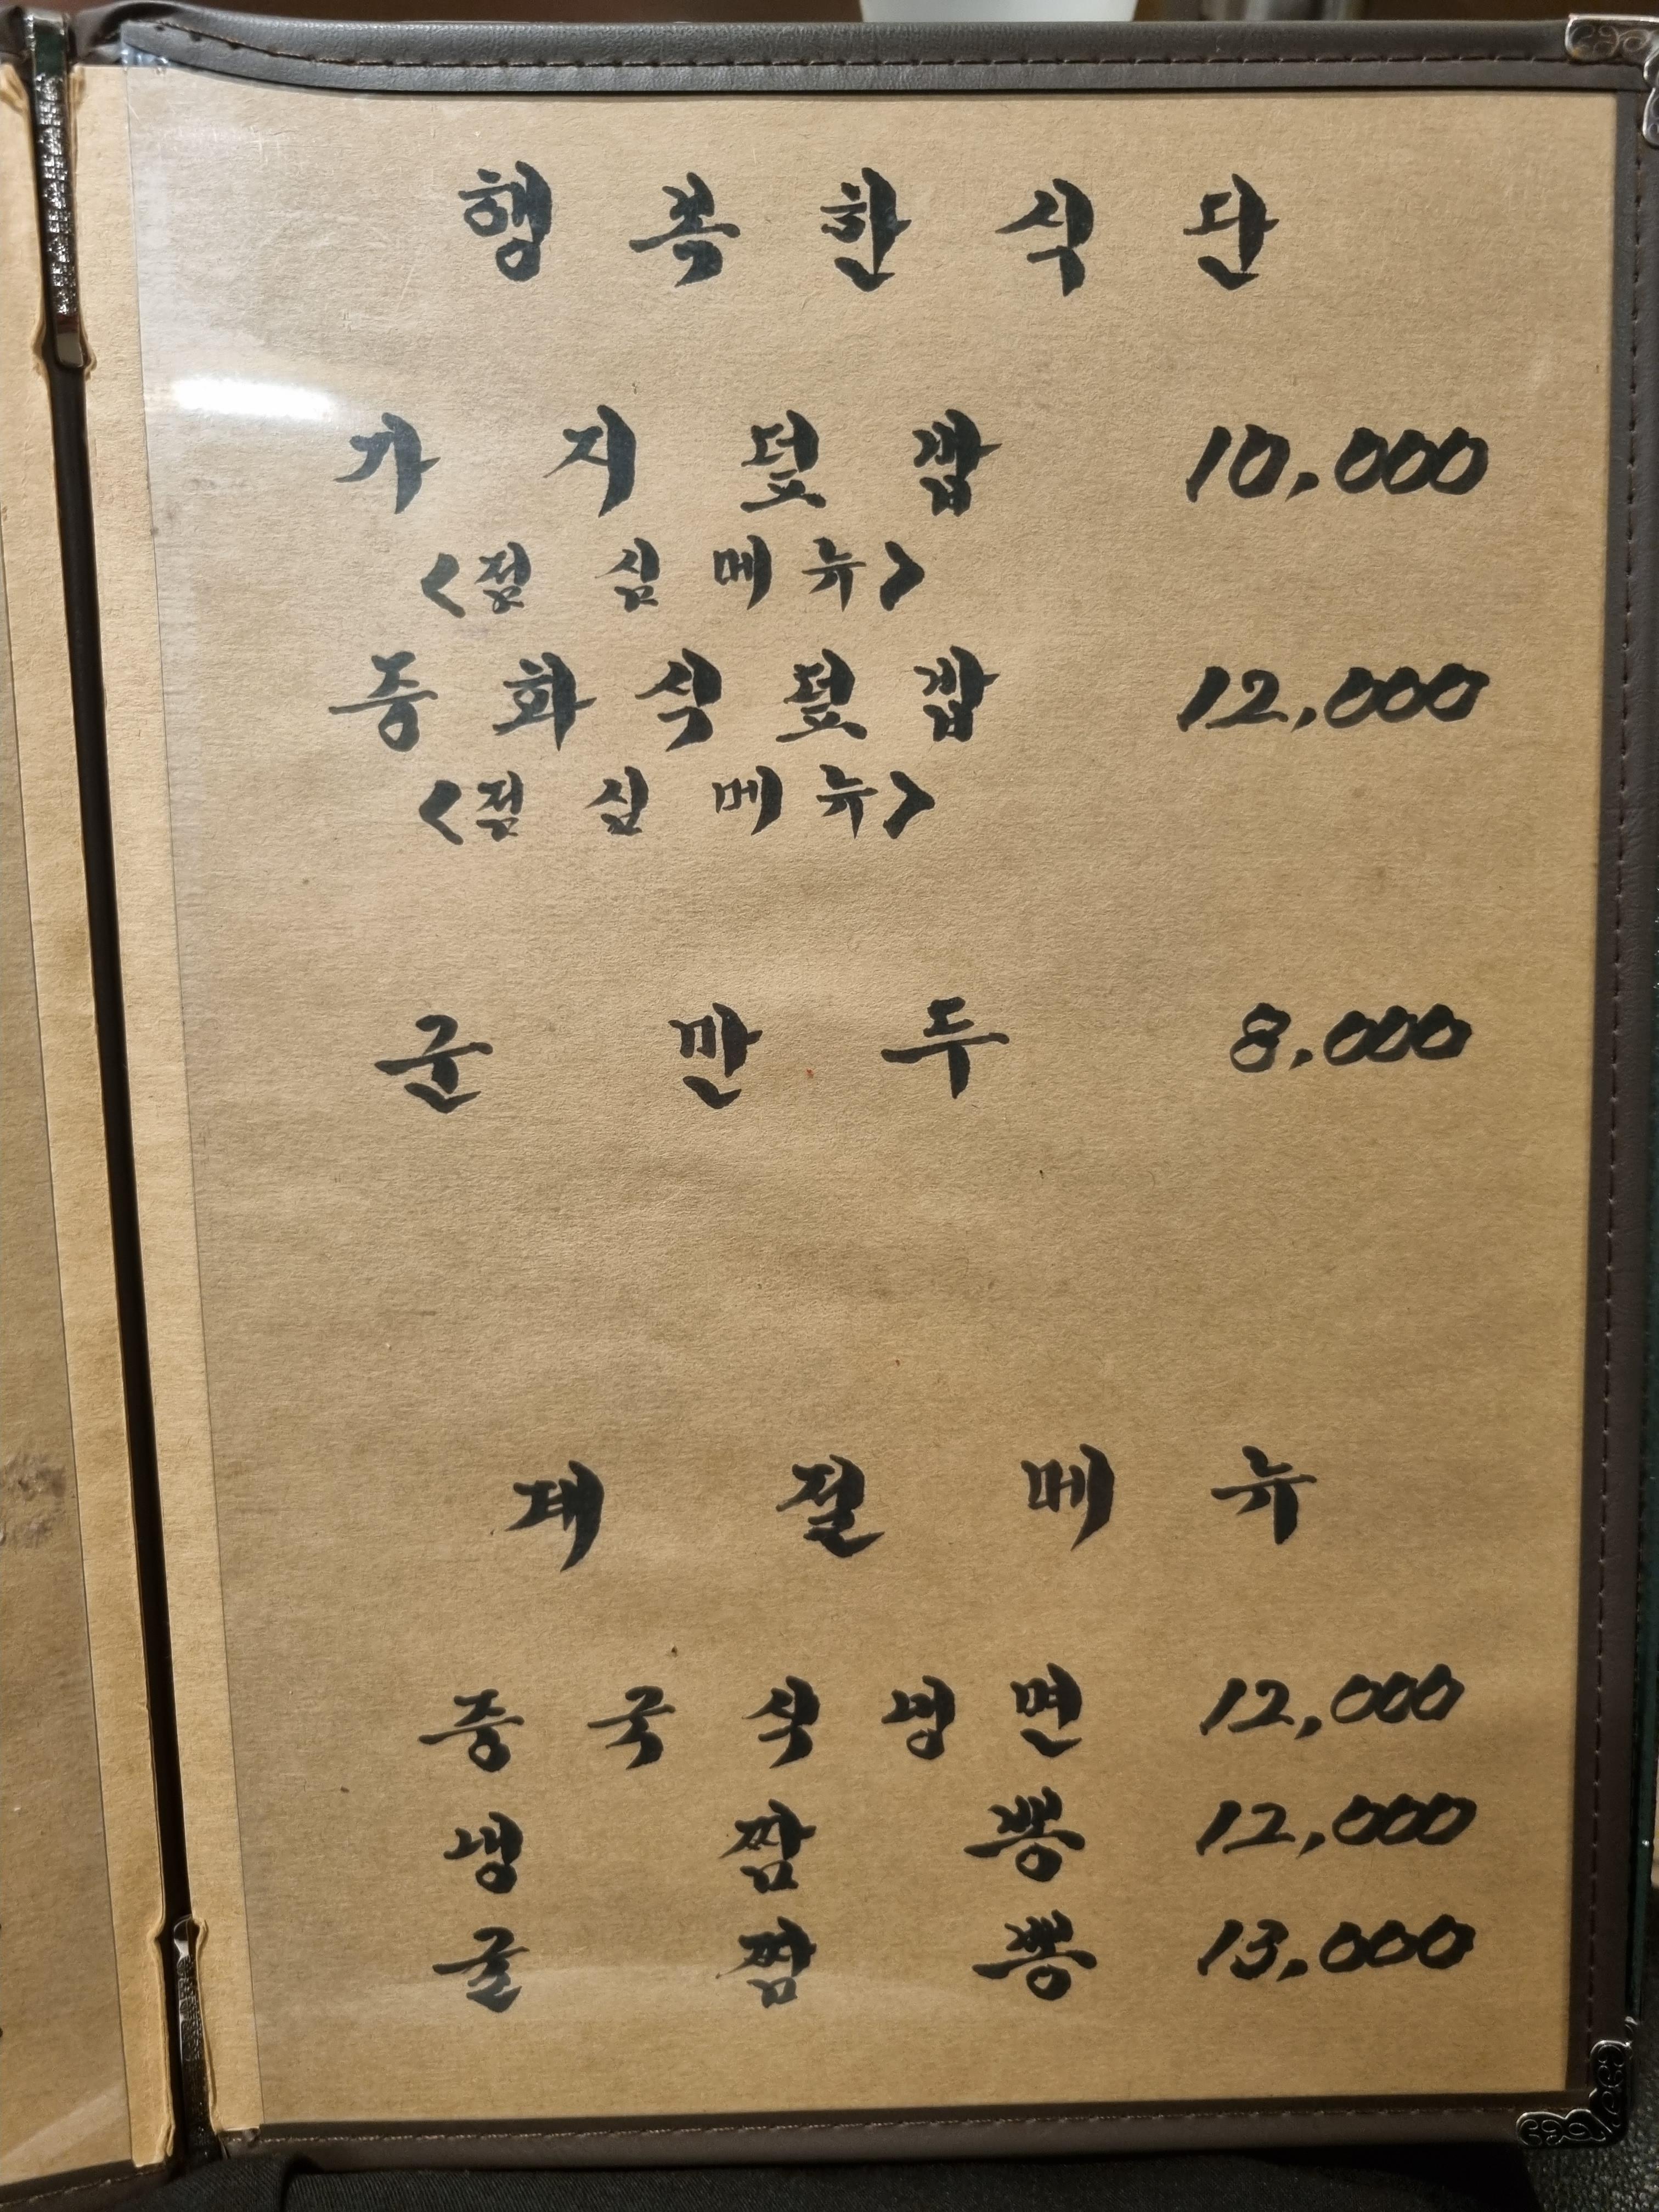 행복한식단
가지덮밥 10,000
<점심메뉴>
중화식덮밥 12,000
<점심메뉴>
군만두 8,000
계절메뉴
중국식냉면 12,000
냉짬뽕 12,000
굴짬뽕 13,000